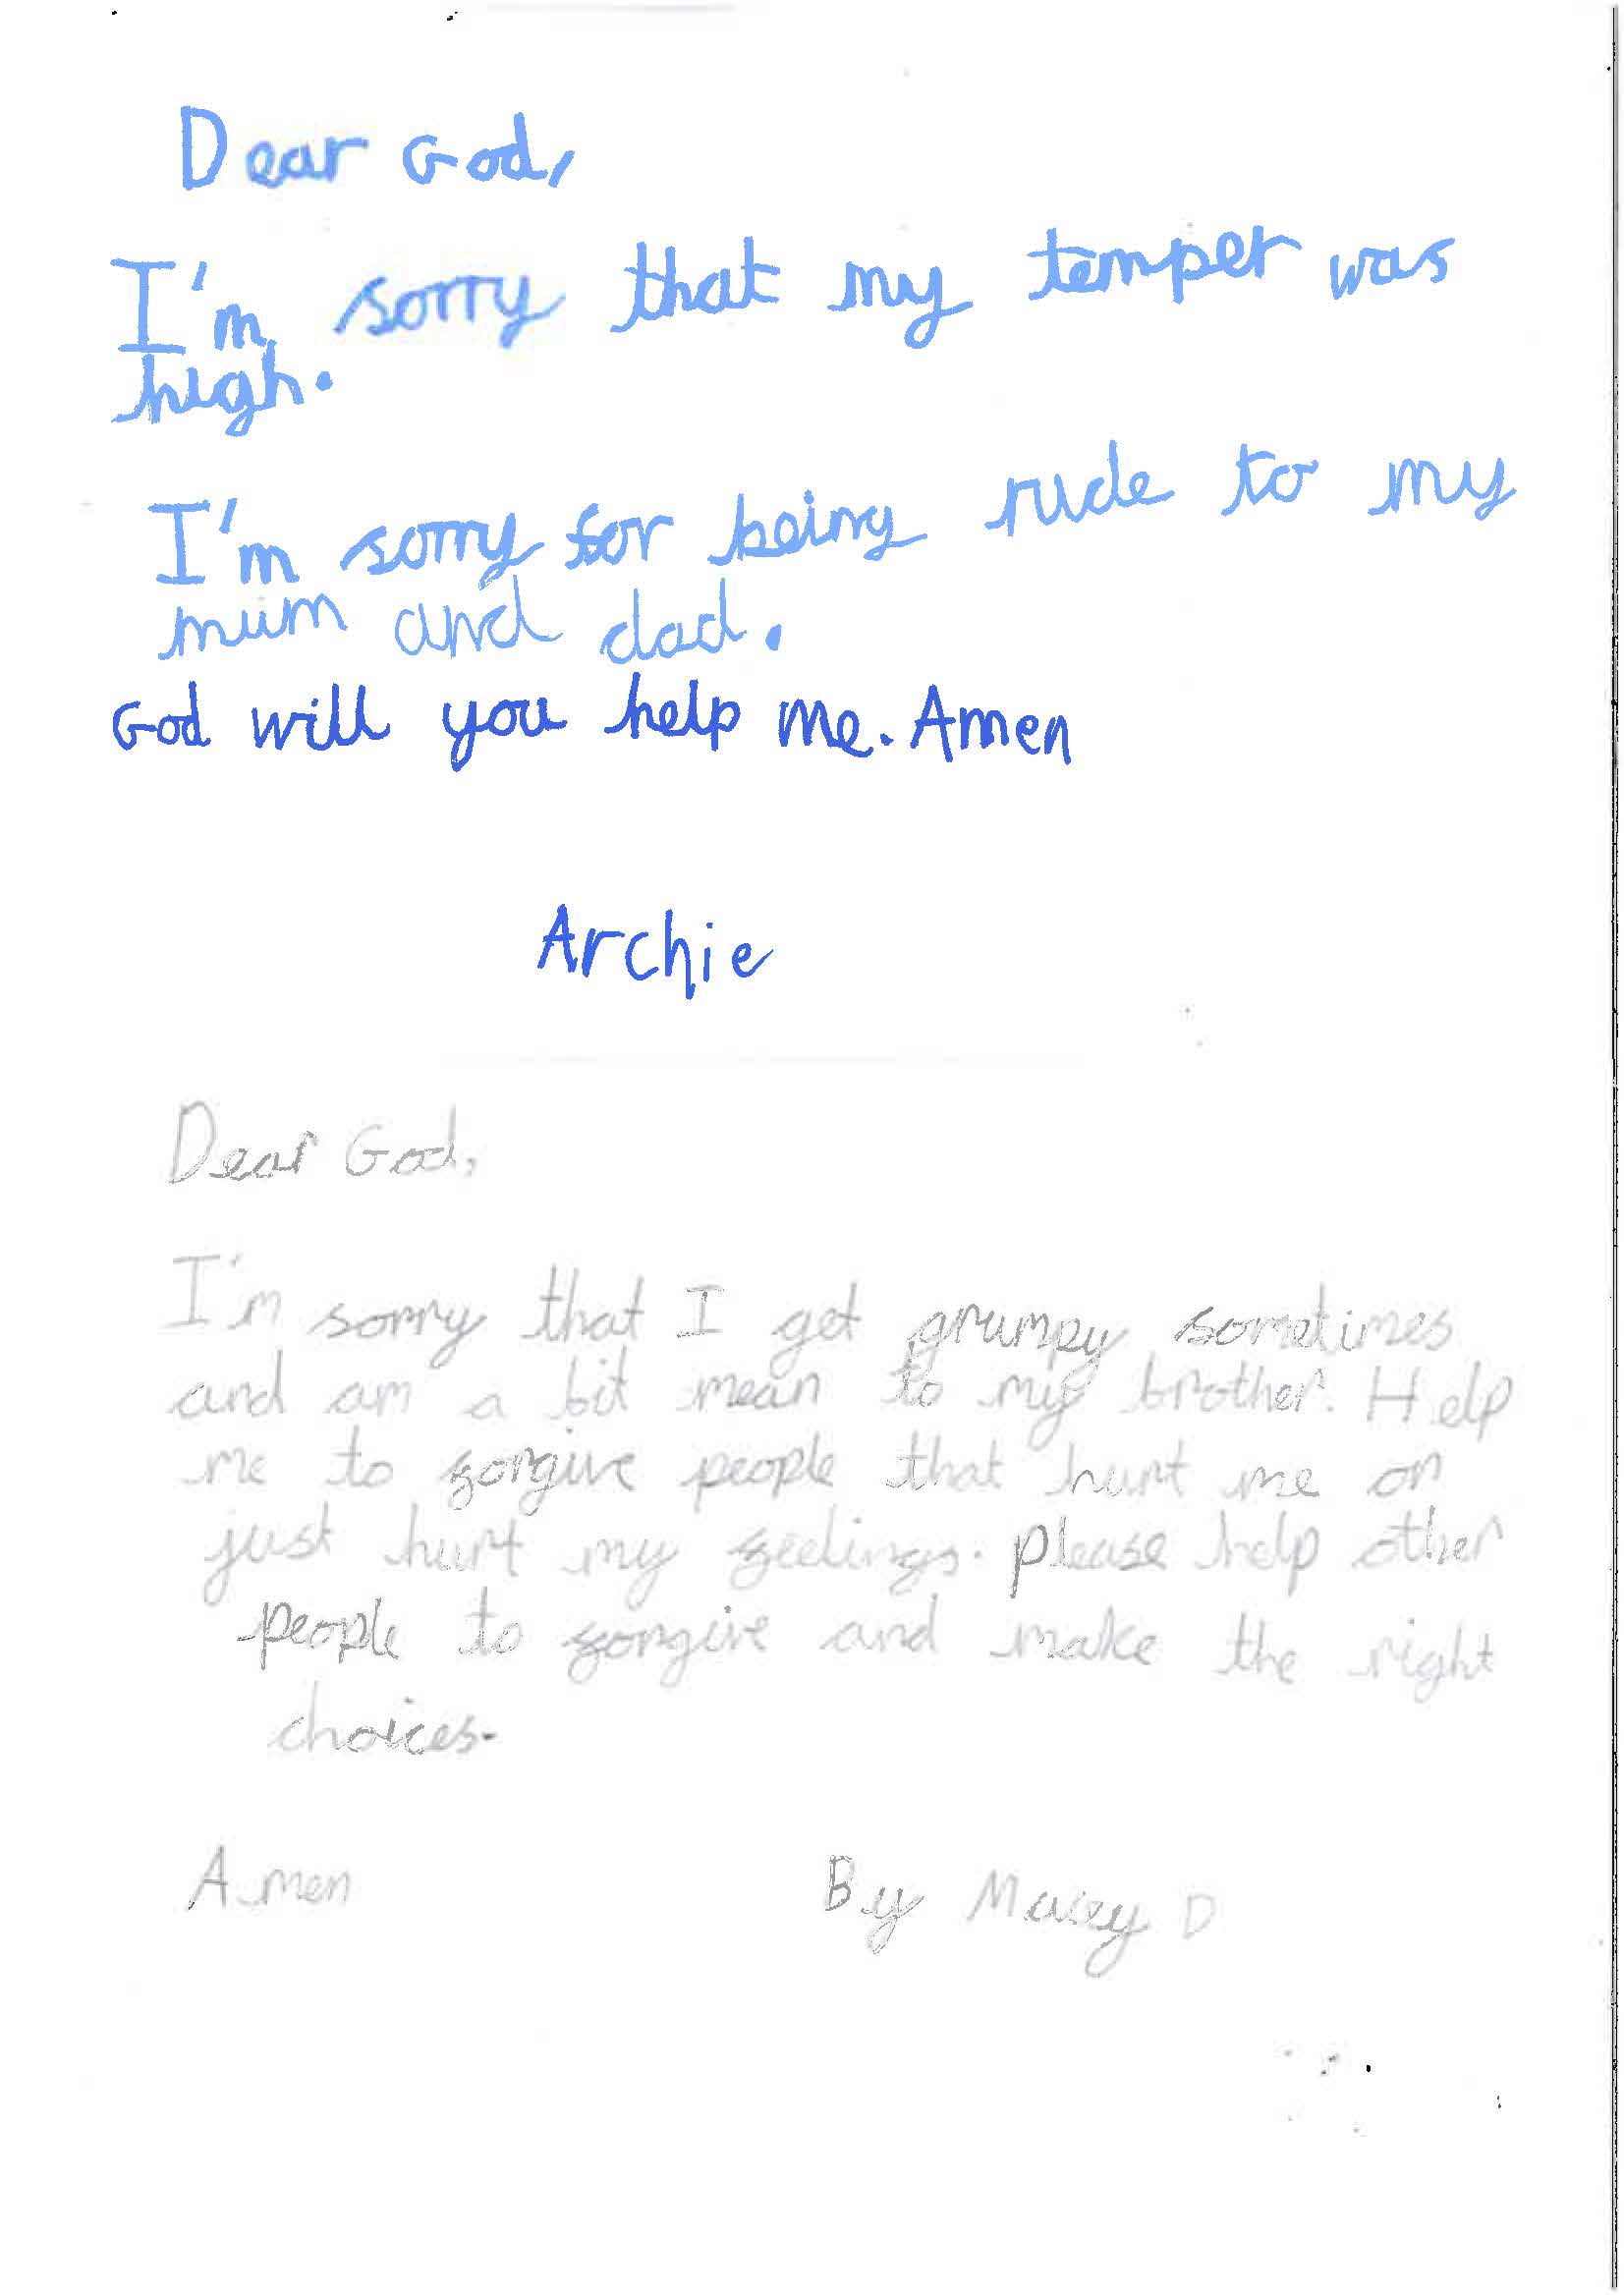 Dear God,
I'm sorry that my temper was
high.
I'm sorry for being rude to my
mum and dad.
God will you help me. Amen
Archie
Dear God,
I'm sorry that I get grumpy sometimes
and am a bit mean to my brother. Help
me to forgive people that hurt me or
just hurt my feelings. please help other
people to forgive and make the right
choices.
Amen By Macey D